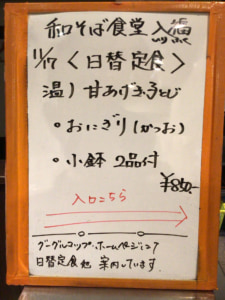 和そば食堂 入福
11/7 〈日替定食〉
温) 甘あげ玉子とじ
・おにぎり(かつお)
・小鉢 2品付
入口こちら
グーグルマップ、ホームページにて
日替定食も 案内しています